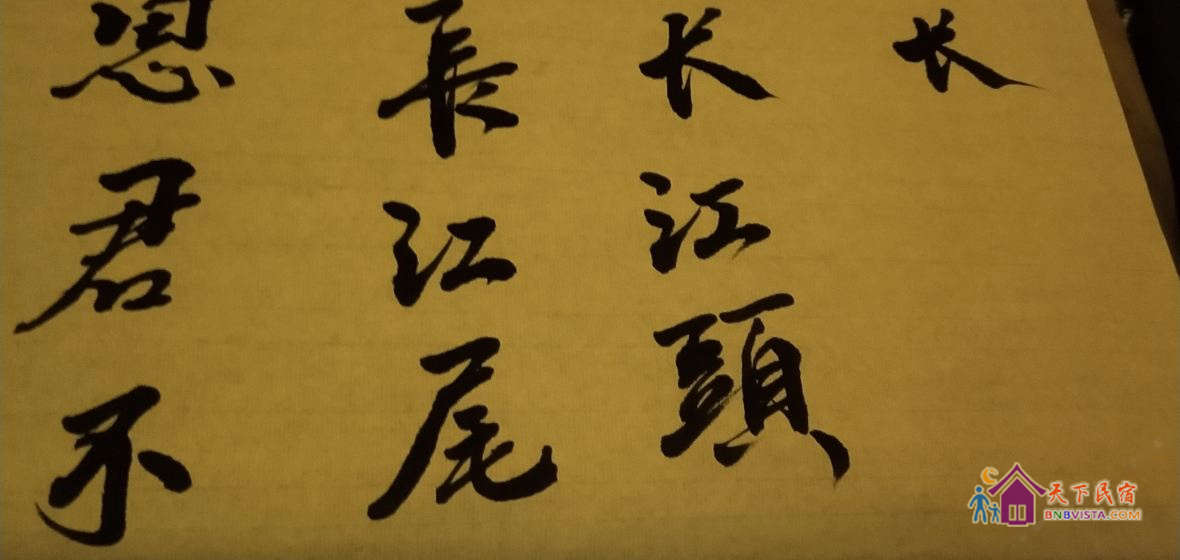 长
长江頭
長江尾
思君不
天下民宿
BNBVISTA.COM